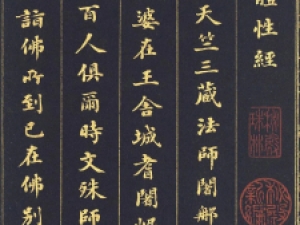 體性經
天竺三藏法師闍那
婆在王舍城耆闍崛
百人俱爾時文殊師
詣佛所到已在佛別